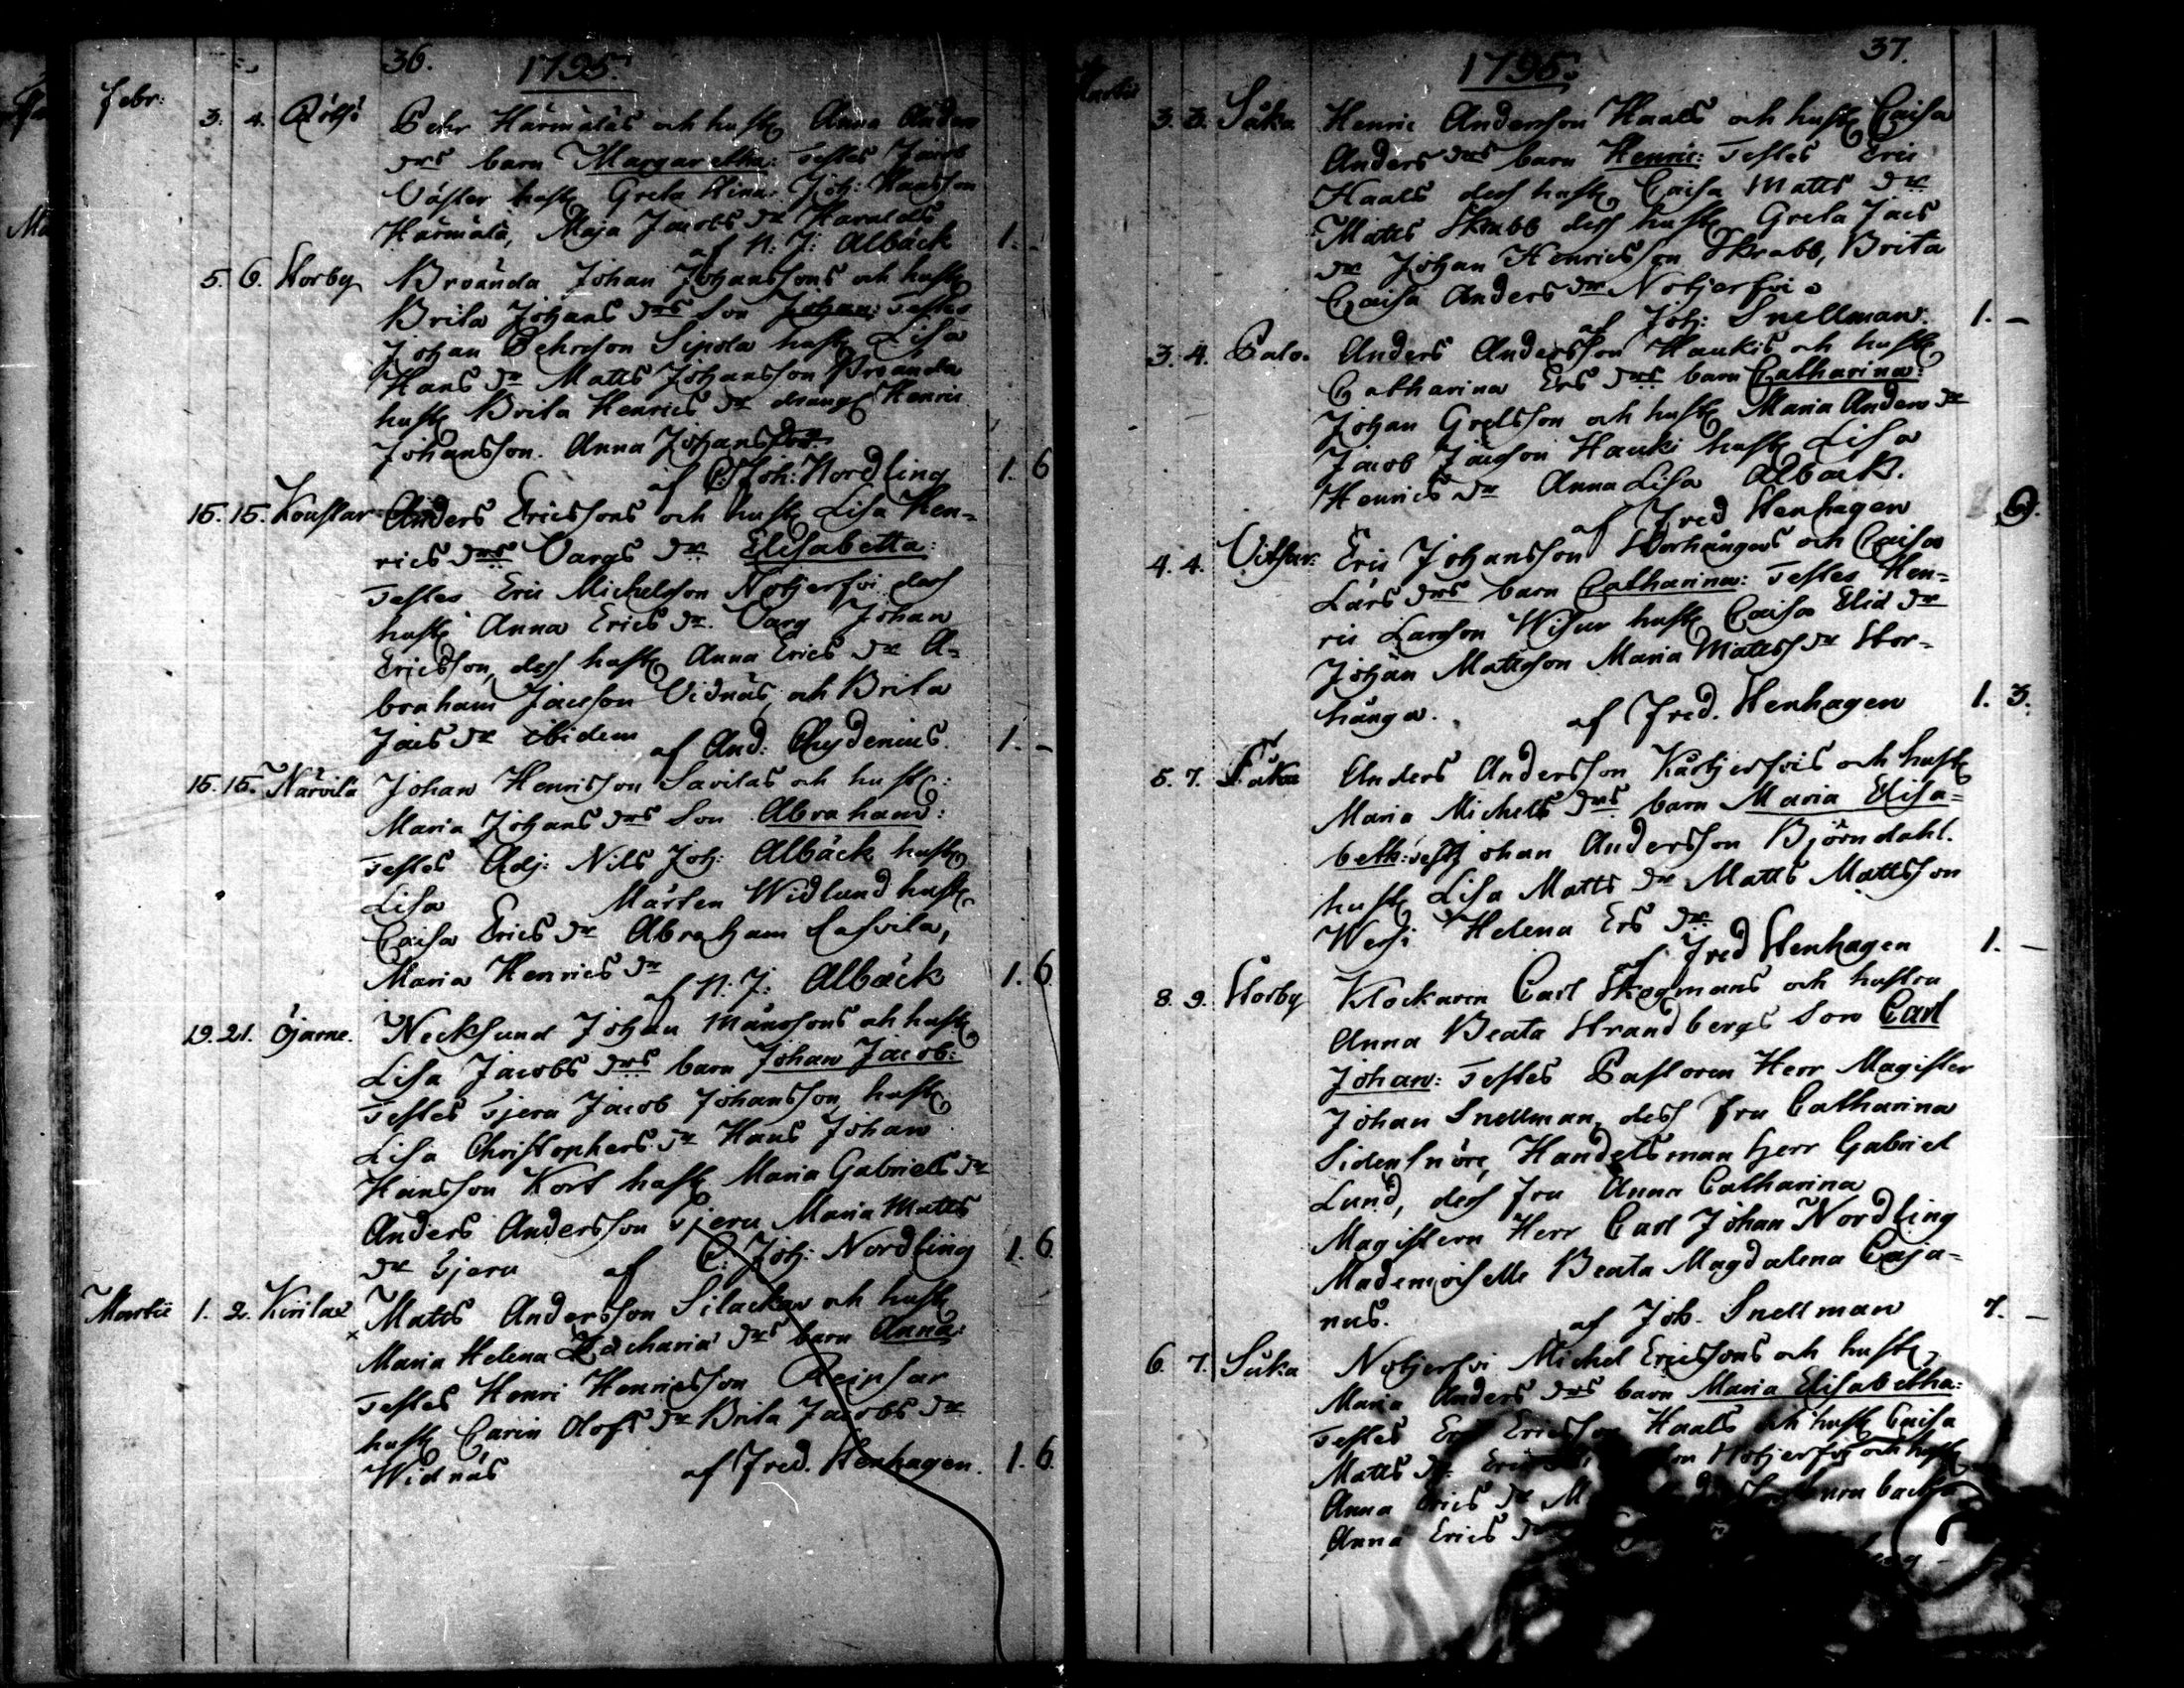 36. 1795.
Febr:
3. 4. Röhsö Pehr Härmäläs och hust Anna Anders
drs barn Margaretha: Testes Jacob
Väster hust Greta Stina Joh: Hansson
Härmälä, Maja Jacobs dr Haralds
af N. J: Albäck 1. -
5. 6. Storby Broända Johan Johanssons och hust
Brita Johans drs Son Johan: Testes
Johan Pehrsson Sipola hust Lisa
Hans dr Matts Johansson Broända
hust Brita Henrics dr dräng Henric
Johansson. Anna Johans dr
af C. Joh: Nordling 1. 6
15. 15. Koustar Anders Ericssons och hust Lisa Hen-
rics drs Vargs dr Elisabetta:
Testes Eric Michelsson Nobjerfvi dess
hust Anna Erics dr. Varg Johan
Ericsson, dess hust Anna Erics dr A-
braham Jacsson Vidnäs, och Brita
Jacs dr ibidem af And: Chydenius. 1. -
15. 15. Närvilä Johan Henricsson Savilas och hust:
Maria Johans drs Son Abraham:
Testes Adj: Nils Joh: Albäck hust
Lisa Mårten Widlund hust
Caisa Erics dr Abraham Lasvila,
Maria Henrics dr
af N. J: Albäck 1. 6
19. 21. Öjarne. Necksund Johan Månssons och hust
Lisa Jacobs drs barn Johan Jacob:
Testes Gjeru Jacob Johansson hust
Lisa Christophers dr Hans Johan
Hansson Kort hust Maria Gabriels dr
Anders Andersson Gjeru Maria Matts
dr Gjeru af C: Joh: Nordling 1. 6
Martii 1. 2. Kirilax Matts Andersson Silackas och hust
Maria Helena Zachariæ drs barn Anna:
Testes Henri Henricsson Reipsar
hust Carin Olofs dr Brita Jacobs dr
Widnäs af Fred. Stenhagen. 1. 6.
1795. 37.
Martii
3. 3. Såka Henric Andersson Haals och hust Caisa
Anders drs barn Henric: Testes Eric
Haals dess hust Caisa Matts dr
Matts Skrabb dess hust Greta Jacs
dr Johan Henricsson Skrabb, Brita
Caisa Anders dr Nobjerfvi
af Joh: Snellman. 1. -
3. 4. Palo. Anders Andersson Haukis och hust
Catharina Ers drs barn Catharina:
Johan Grelsson och hust Maria Anders dr
Jacob Jacsson Hauki hust Lisa
Henrics dr Anna Lisa Albäck.
af Fred Stenhagen
4. 4. Vitsar: Eric Johansson Storhångas och Caisa
Lars drs barn Catharina: Testes Hen-
ric Larsson Wisur hust Caisa Elis dr
Johan Mattsson Maria Matts dr Stor-
hånga. af Fred. Stenhagen 1. 3.
5. 7. Såka Anders Andersson Kårbjerfvis och hust
Maria Michels drs barn Maria Elisa-
beth: Test Johan Andersson Björndahl.
hust Lisa Matts dr Matts Mattsson
Wersi Helena Ers dr
af Fred Stenhagen 1. -
8. 9. Storby Klockaren Carl Skogmans och hustru
Anna Beata Strandbergs Son Carl
Johan: Testes Pastoren Herr Magister
Johan Snellman, dess Fru Catharina
Sidensnöre, Handelsman Herr Gabriel
Lund, dess Fru Anna Catharina
Magistern Herr Carl Johan Nordling
Mademoiselle Beata Magdalena Caja-
nus. af Joh. Snellman 1. -
6. 7. Såka Nobjerfvi Michel Ericssons och hust,
Maria Anders drs barn Maria Elisabetha:
Testes Er Ericsson Haals och hust Caisa
Matts dr Eric Nobjerfvi och hust
Anna Erics dr M
Anna Erics dr